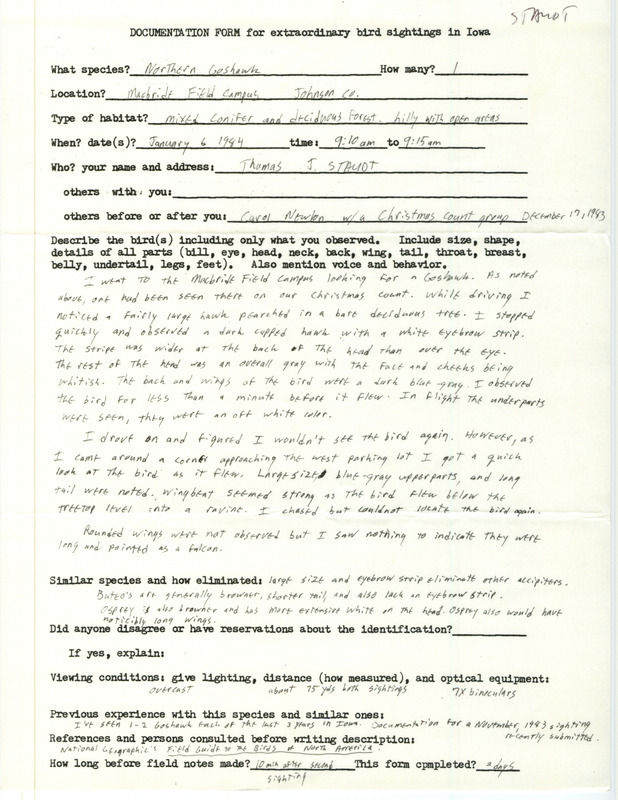 STAUDT
DOCUMENTATION FORM for extraordinary bird sightings in Iowa
What species? Northern Goshawk How many? 1
Location? Macbride Field Campus Johnson Co.
Type of habitat? mixed conifer and deciduous forest. hilly with open areas
When? date(s)? January 6 1984 time: 9:10 am to 9:15 am
Who? your name and address: Thomas J. STAUDT
others with you:
others before or after you: Carol Newlon w/a Christmas Count group December 17, 1983
Describe the bird(s) including only what you observed. Include size, shape,
details of all parts (bill, eye, head, neck, back, wing, tail, throat, breast,
belly, undertail, legs, feet). Also mention voice and behavior.
I went to the Macbride Field Campus looking for a Goshawk. As noted
above, one had been seen there on our Christmas Count. While driving I
noticed a fairly large hawk pearched in a bare deciduous tree. I stopped
quickly and observed a dark capped hawk with a white eyebrow strip.
The stripe was wider at the back of the head than over the eye.
The rest of the head was an overall gray with the face and cheeks being
whitish. The back and wings of the bird were a dark blue-gray. I observed
the bird for less than a minute before it flew. In flight the underparts
were seen, they were an off white color.
I drove on and figured I wouldn't see the bird again. However, as
I came around a corner approaching the west parking lot I got a quick
look at the bird as it flew. Large size, blue-gray upperparts, and long
tail were noted. Wingbeat seemed strong as the bird flew below the
treetop level into a ravine. I chased but couldnot locate the bird again.
Rounded wings were not observed but I saw nothing to indicate they were
long and pointed as a falcon.
Similar species and how eliminated: large size and eyebrow strip eliminate other accipiters.
Buteo's are generally browner, shorter tail, and also lack an eyebrow strip.
Osprey is also browner and has more extensive white on the head. Osprey also would have
noticibly long wings.
Did anyone disagree or have reservations about the identification?
If yes, explain:
Viewing conditions: give lighting, distance (how measured), and optical equipment:
overcast about 75 yds both sightings 7X binoculars
Previous experience with this species and similar ones:
I've seen 1-2 Goshawk each of the last 3 years in Iowa. Documentation for a November, 1983 sighting
recently submitted.
References and persons consulted before writing description:
National Geographic's Field Guide to the Birds of North America.
How long before field notes made? 10 min after second This form completed? 2 days
sighting